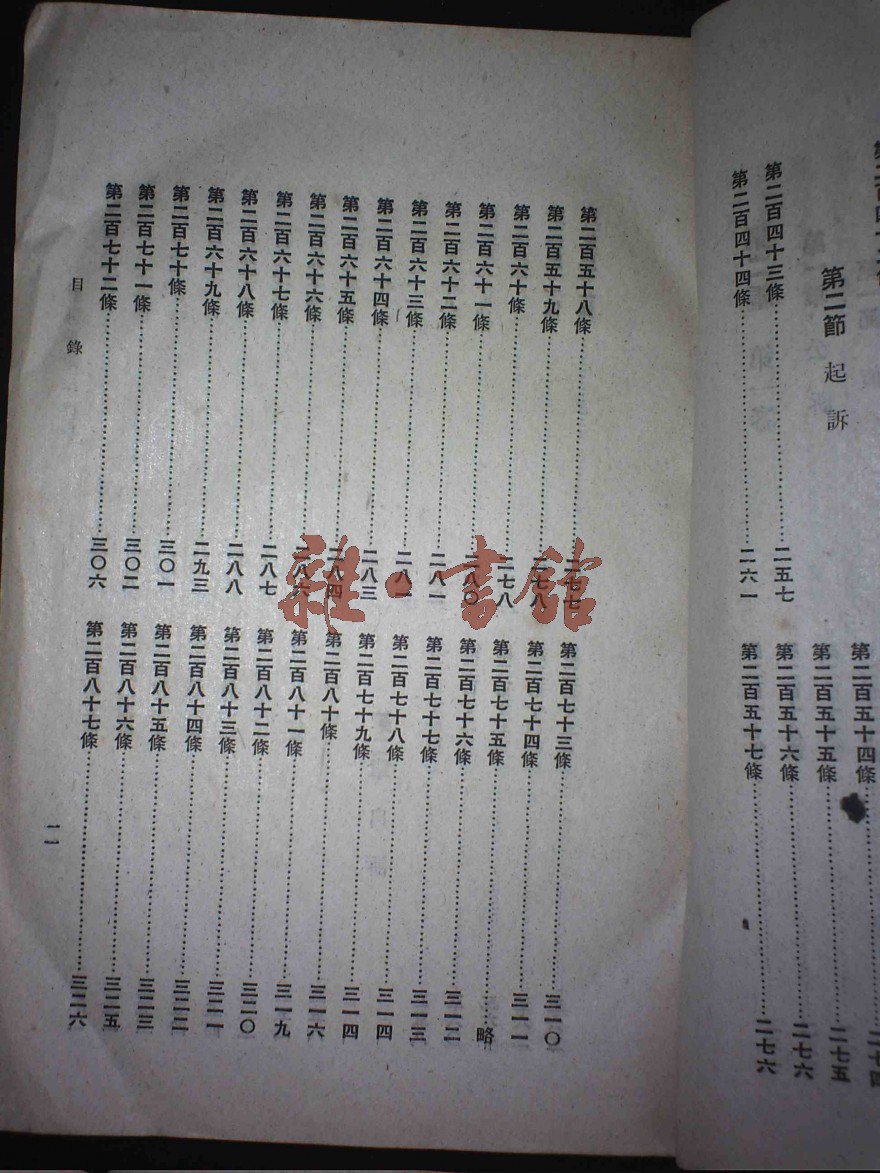 第二節 起訴
第二百四十三條……二五七
第二百四十四條……二六一
第二百五十四條……二七四
第二百五十五條……二七五
第二百五十六條……二七六
第二百五十七條……二七六
第二百五十八條……二七七
第二百五十九條……二七八
第二百六十條……二七八
第二百六十一條……二八〇
第二百六十二條……二八一
第二百六十三條……
第二百六十四條……二八三
第二百六十五條……二八四
第二百六十六條……二八六
第二百六十七條……二八七
第二百六十八條……二八八
第二百六十九條……二九三
第二百七十條……三〇一
第二百七十一條……三〇二
第二百七十二條……三〇六
第二百七十三條……三一〇
第二百七十四條……三一一
第二百七十五條……略
第二百七十六條……三一二
第二百七十七條……三一三
第二百七十八條……三一四
第二百七十九條……三一四
第二百八十條……三一六
第二百八十一條……三一九
第二百八十二條……三二〇
第二百八十三條……三二一
第二百八十四條……三二二
第二百八十五條……三二三
第二百八十六條……三二五
第二百八十七條……三二六
目錄
一一
雜·書館